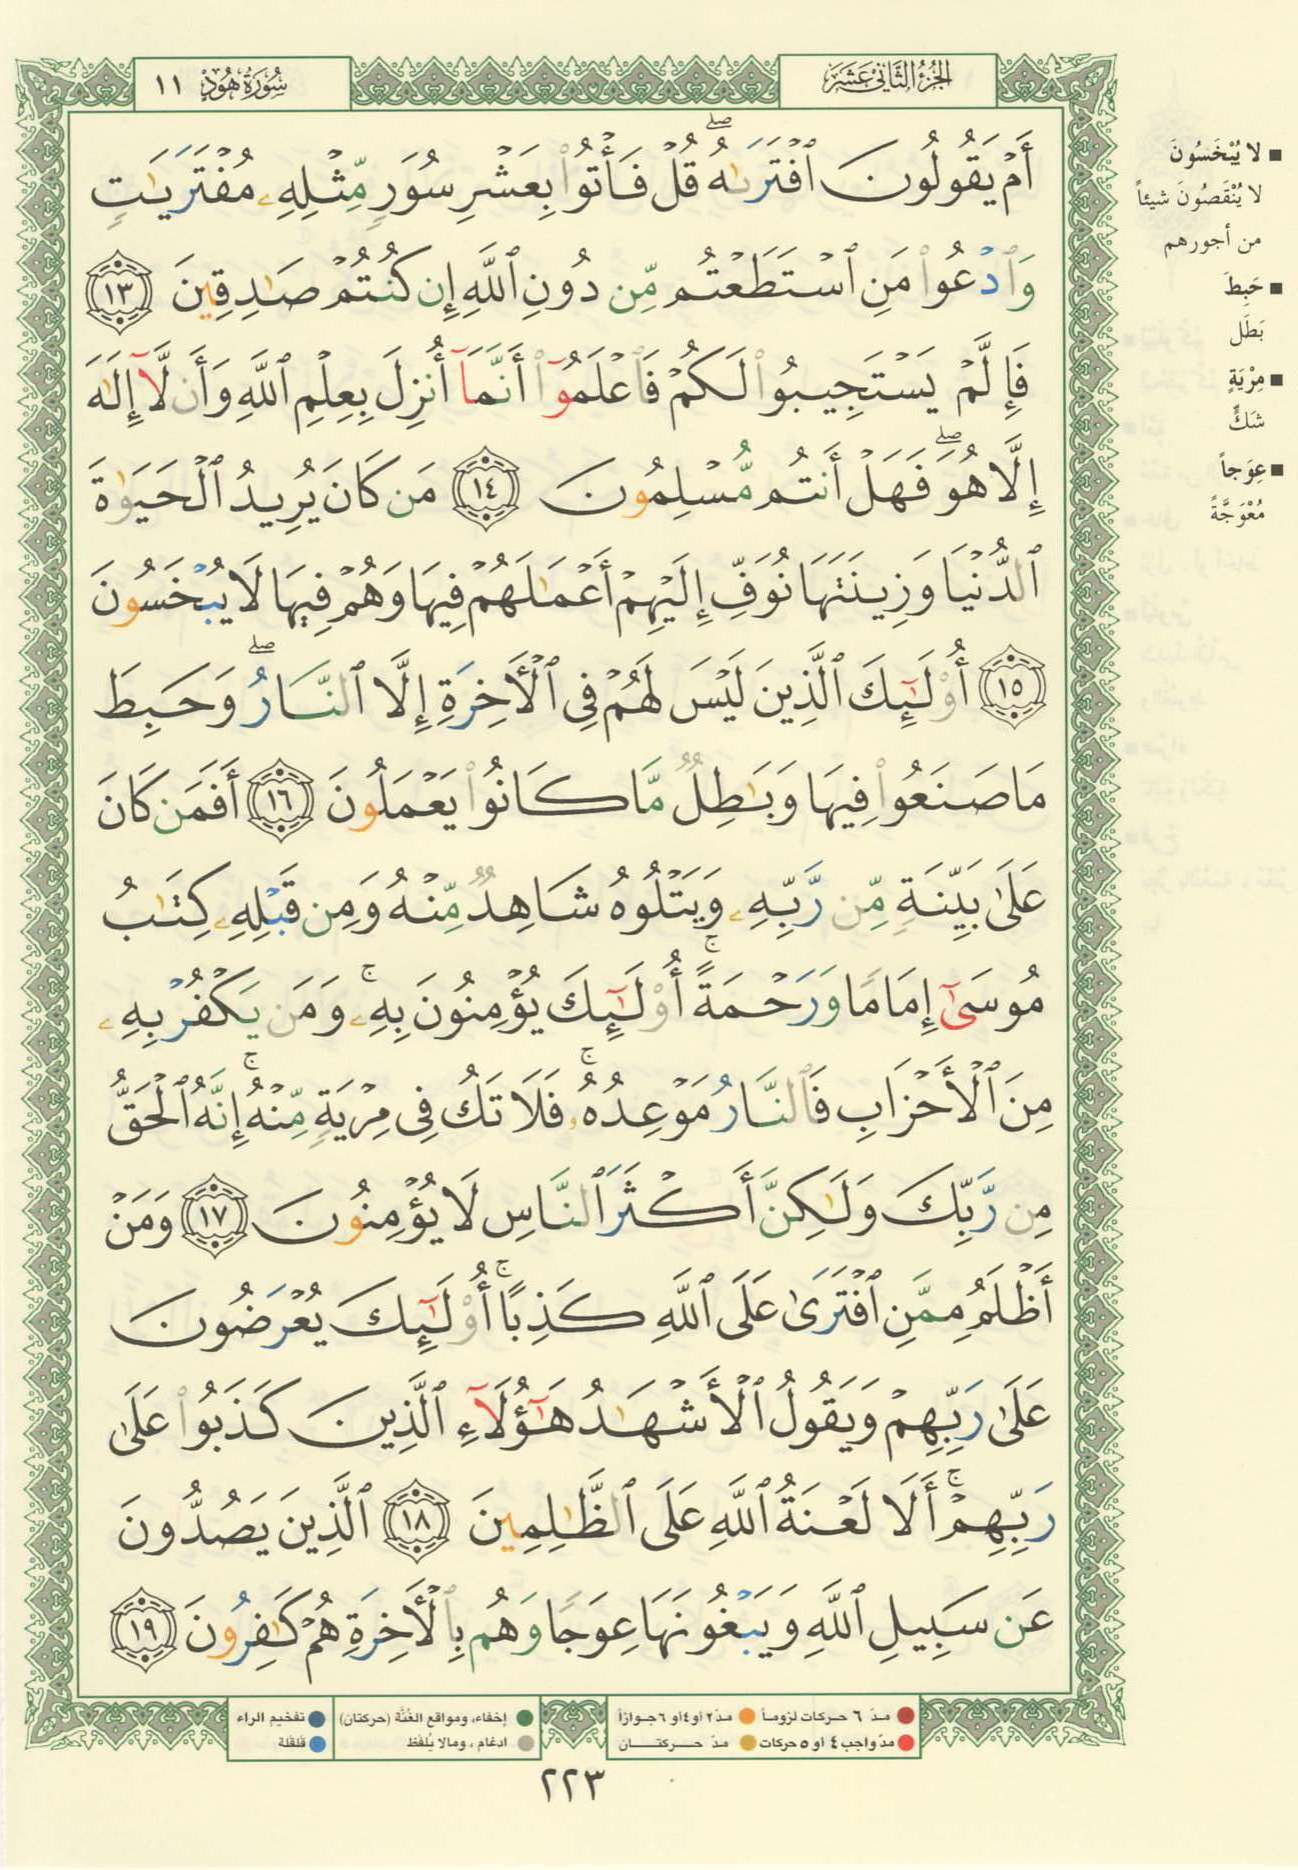 الجزء الثاني عشر
سورة هود ١١
أَمْ يَقُولُونَ ٱفْتَرَىٰهُ ۖ قُلْ فَأْتُوا۟ بِعَشْرِ سُوَرٍ مِّثْلِهِۦ مُفْتَرَيَـٰتٍ
وَٱدْعُوا۟ مَنِ ٱسْتَطَعْتُم مِّن دُونِ ٱللَّهِ إِن كُنتُمْ صَـٰدِقِينَ ١٣
فَإِلَّمْ يَسْتَجِيبُوا۟ لَكُمْ فَٱعْلَمُوٓا۟ أَنَّمَآ أُنزِلَ بِعِلْمِ ٱللَّهِ وَأَن لَّآ إِلَـٰهَ
إِلَّا هُوَ ۖ فَهَلْ أَنتُم مُّسْلِمُونَ ١٤ مَن كَانَ يُرِيدُ ٱلْحَيَوٰةَ
ٱلدُّنْيَا وَزِينَتَهَا نُوَفِّ إِلَيْهِمْ أَعْمَـٰلَهُمْ فِيهَا وَهُمْ فِيهَا لَا يُبْخَسُونَ
١٥ أُو۟لَـٰٓئِكَ ٱلَّذِينَ لَيْسَ لَهُمْ فِى ٱلْـَٔاخِرَةِ إِلَّا ٱلنَّارُ ۖ وَحَبِطَ
مَا صَنَعُوا۟ فِيهَا وَبَـٰطِلٌ مَّا كَانُوا۟ يَعْمَلُونَ ١٦ أَفَمَن كَانَ
عَلَىٰ بَيِّنَةٍ مِّن رَّبِّهِۦ وَيَتْلُوهُ شَاهِدٌ مِّنْهُ وَمِن قَبْلِهِۦ كِتَـٰبُ
مُوسَىٰٓ إِمَامًا وَرَحْمَةً ۚ أُو۟لَـٰٓئِكَ يُؤْمِنُونَ بِهِۦ ۚ وَمَن يَكْفُرْ بِهِۦ
مِنَ ٱلْأَحْزَابِ فَٱلنَّارُ مَوْعِدُهُۥ ۚ فَلَا تَكُ فِى مِرْيَةٍ مِّنْهُ ۚ إِنَّهُ ٱلْحَقُّ
مِن رَّبِّكَ وَلَـٰكِنَّ أَكْثَرَ ٱلنَّاسِ لَا يُؤْمِنُونَ ١٧ وَمَنْ
أَظْلَمُ مِمَّنِ ٱفْتَرَىٰ عَلَى ٱللَّهِ كَذِبًا ۚ أُو۟لَـٰٓئِكَ يُعْرَضُونَ
عَلَىٰ رَبِّهِمْ وَيَقُولُ ٱلْأَشْهَـٰدُ هَـٰٓؤُلَآءِ ٱلَّذِينَ كَذَبُوا۟ عَلَىٰ
رَبِّهِمْ ۚ أَلَا لَعْنَةُ ٱللَّهِ عَلَى ٱلظَّـٰلِمِينَ ١٨ ٱلَّذِينَ يَصُدُّونَ
عَن سَبِيلِ ٱللَّهِ وَيَبْغُونَهَا عِوَجًا وَهُم بِٱلْـَٔاخِرَةِ هُمْ كَـٰفِرُونَ ١٩
■ لا يُبْخَسُونَ
لا يُنْقَصُونَ شيئاً
من أجورهم
■ حَبِطَ
بَطَل
■ مِرْيَةٍ
شَكٍّ
■ عِوَجاً
مُعْوَجَّةً
مدّ ٦ حركات لزوماً مدّ ٢ أو ٤ أو ٦ جوازاً
مدّ واجب ٤ أو ٥ حركات مدّ حركتان
إخفاء، ومواقع الغُنَّة (حركتان)
ادغام، ومالا يُلفَظ
تفخيم الراء
قلقلة
٢٢٣